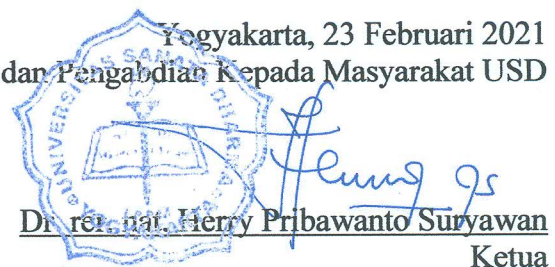 Yogyakarta, 23 Februari 2021
dan Pengabdian Kepada Masyarakat USD
UNIVERSITAS SANATA DHARMA
Dr. rer. nat. Herry Pribawanto Suryawan
Ketua